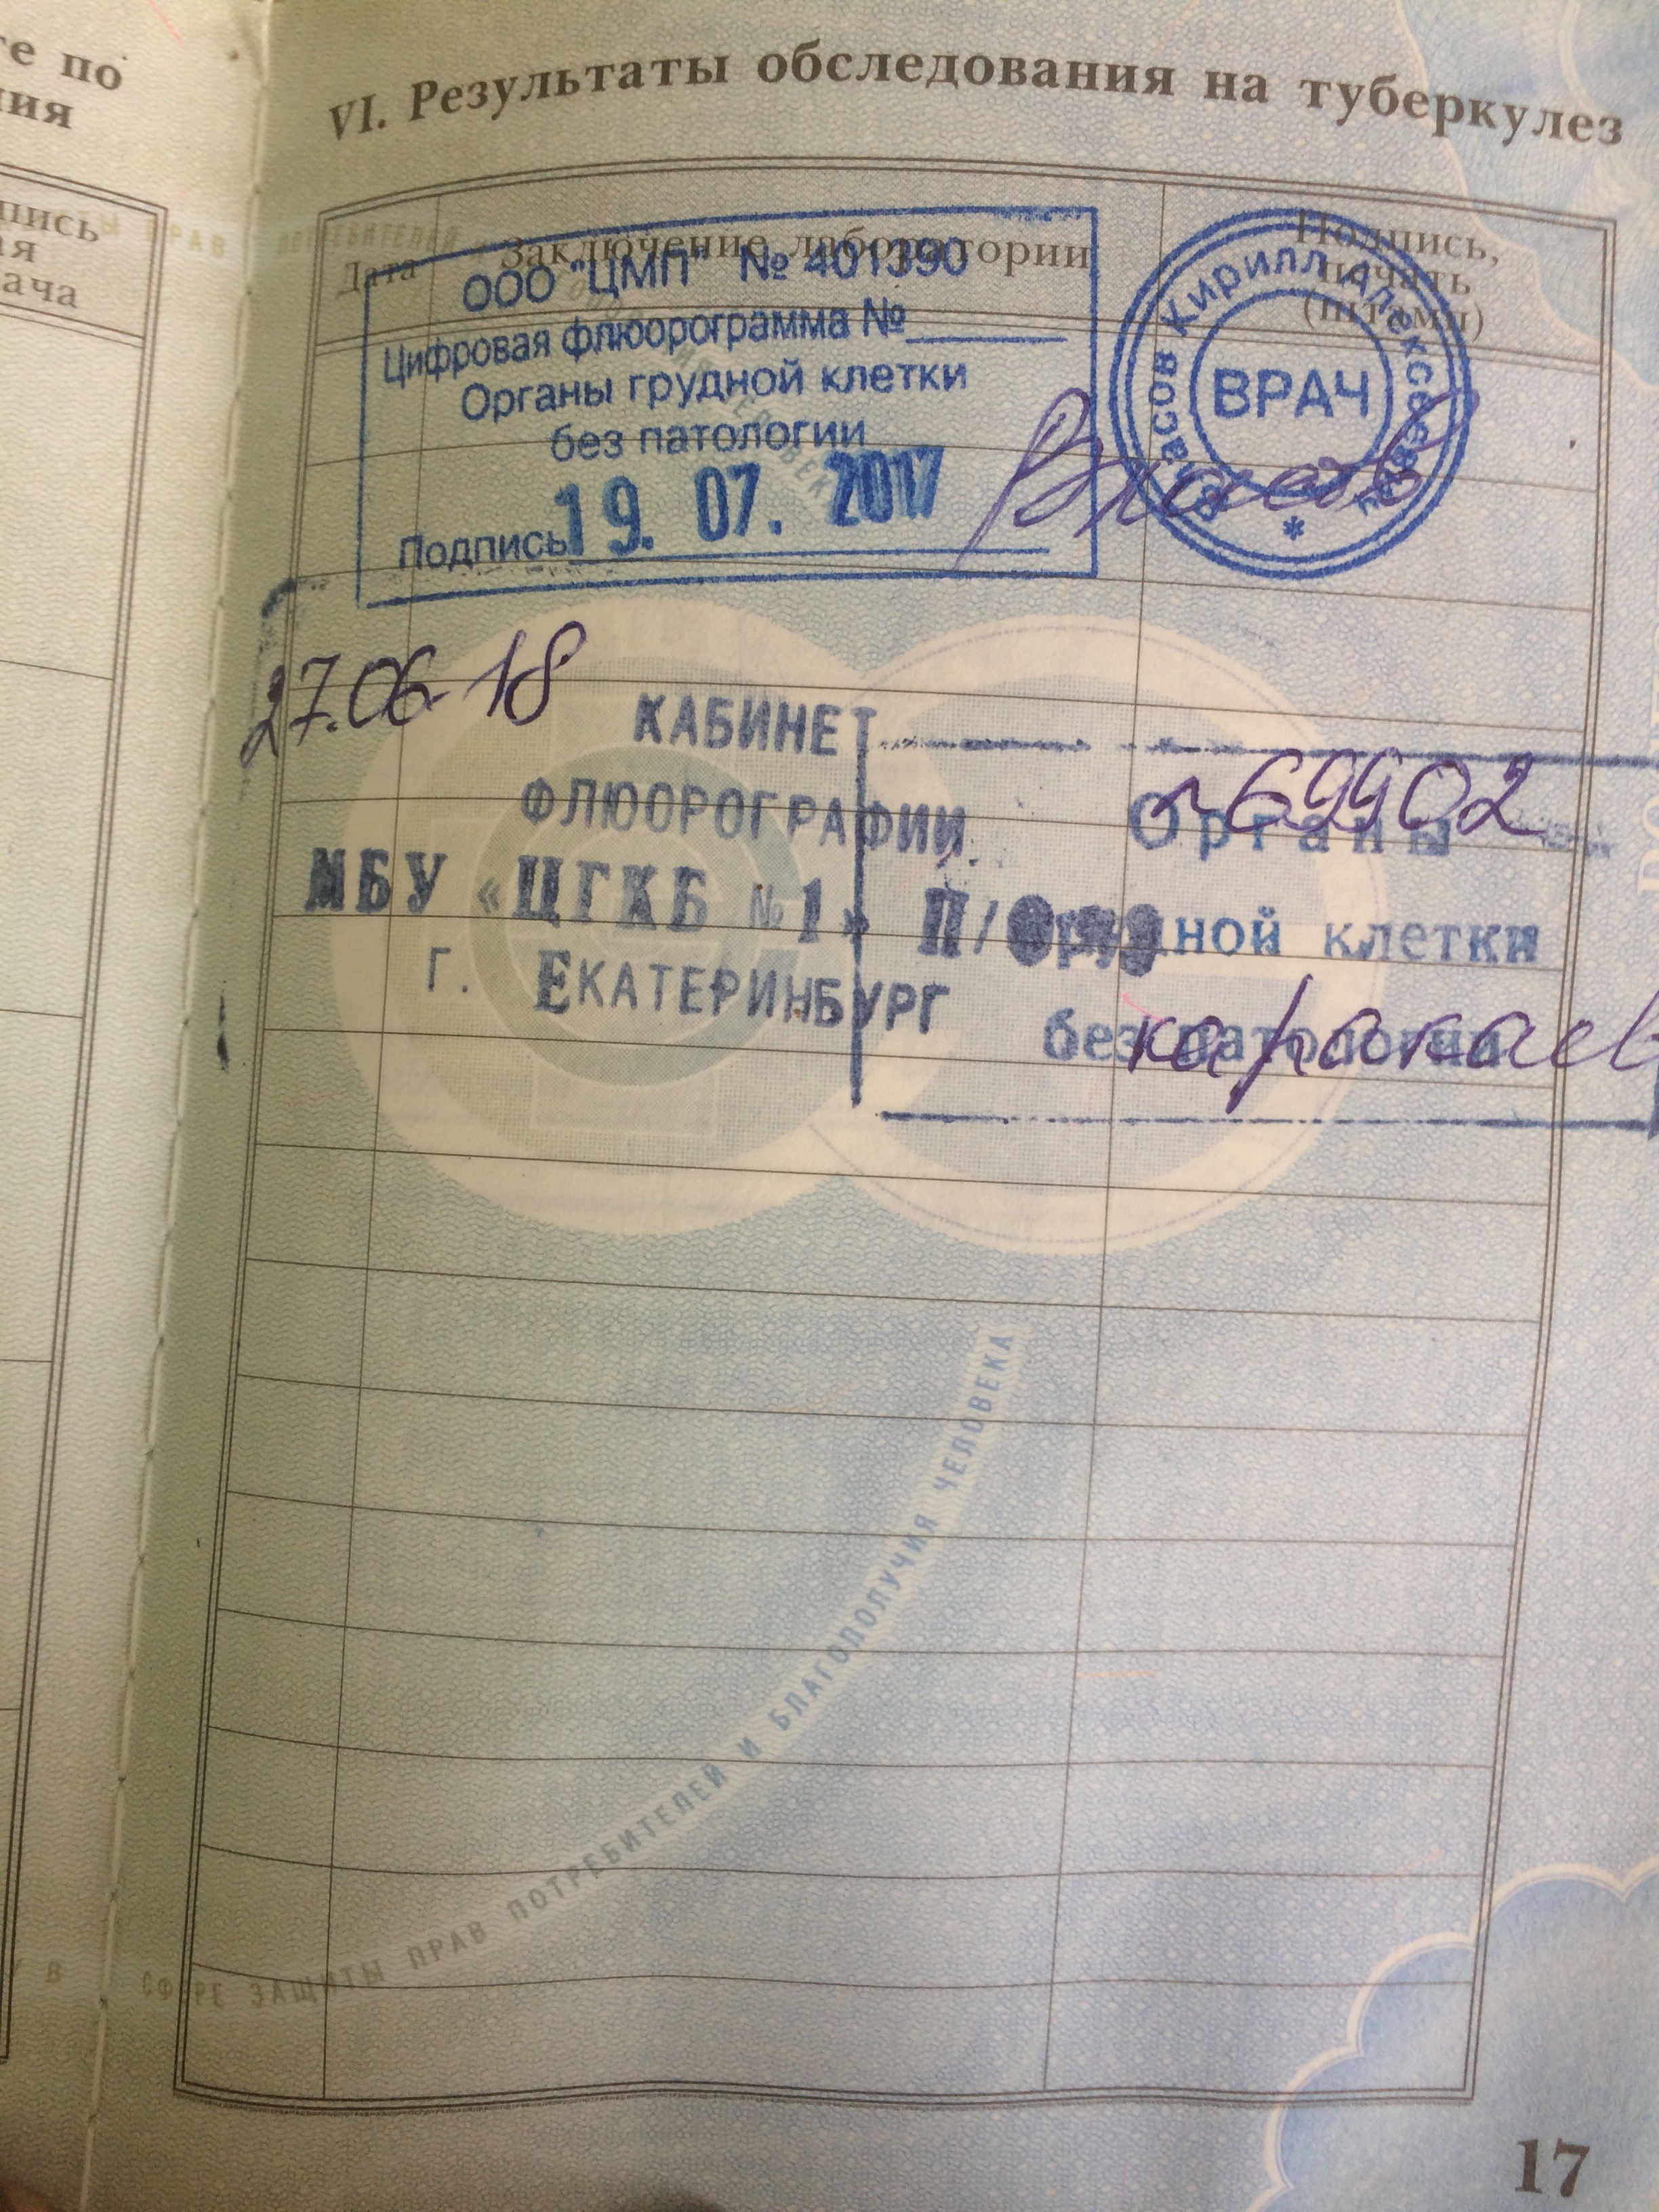 те по
ния
пись
ая
ача
VI. Результаты обследования на туберкулез
Дата
Заключение лаборатории
Подпись,
печать
(штамп)
ООО "ЦМП" № 401390
Цифровая флюорограмма №
Органы грудной клетки
без патологии
19. 07. 2017
Подпись
Власов Кирилл Алексеевич
ВРАЧ
27.06.18
КАБИНЕТ
ФЛЮОРОГРАФИИ
МБУ «ЦГКБ №1» П/О
Г. ЕКАТЕРИНБУРГ
69902
Органы
грудной клетки
без патологии
СФЕРЕ ЗАЩИТЫ ПРАВ ПОТРЕБИТЕЛЕЙ И БЛАГОПОЛУЧИЯ ЧЕЛОВЕКА
17